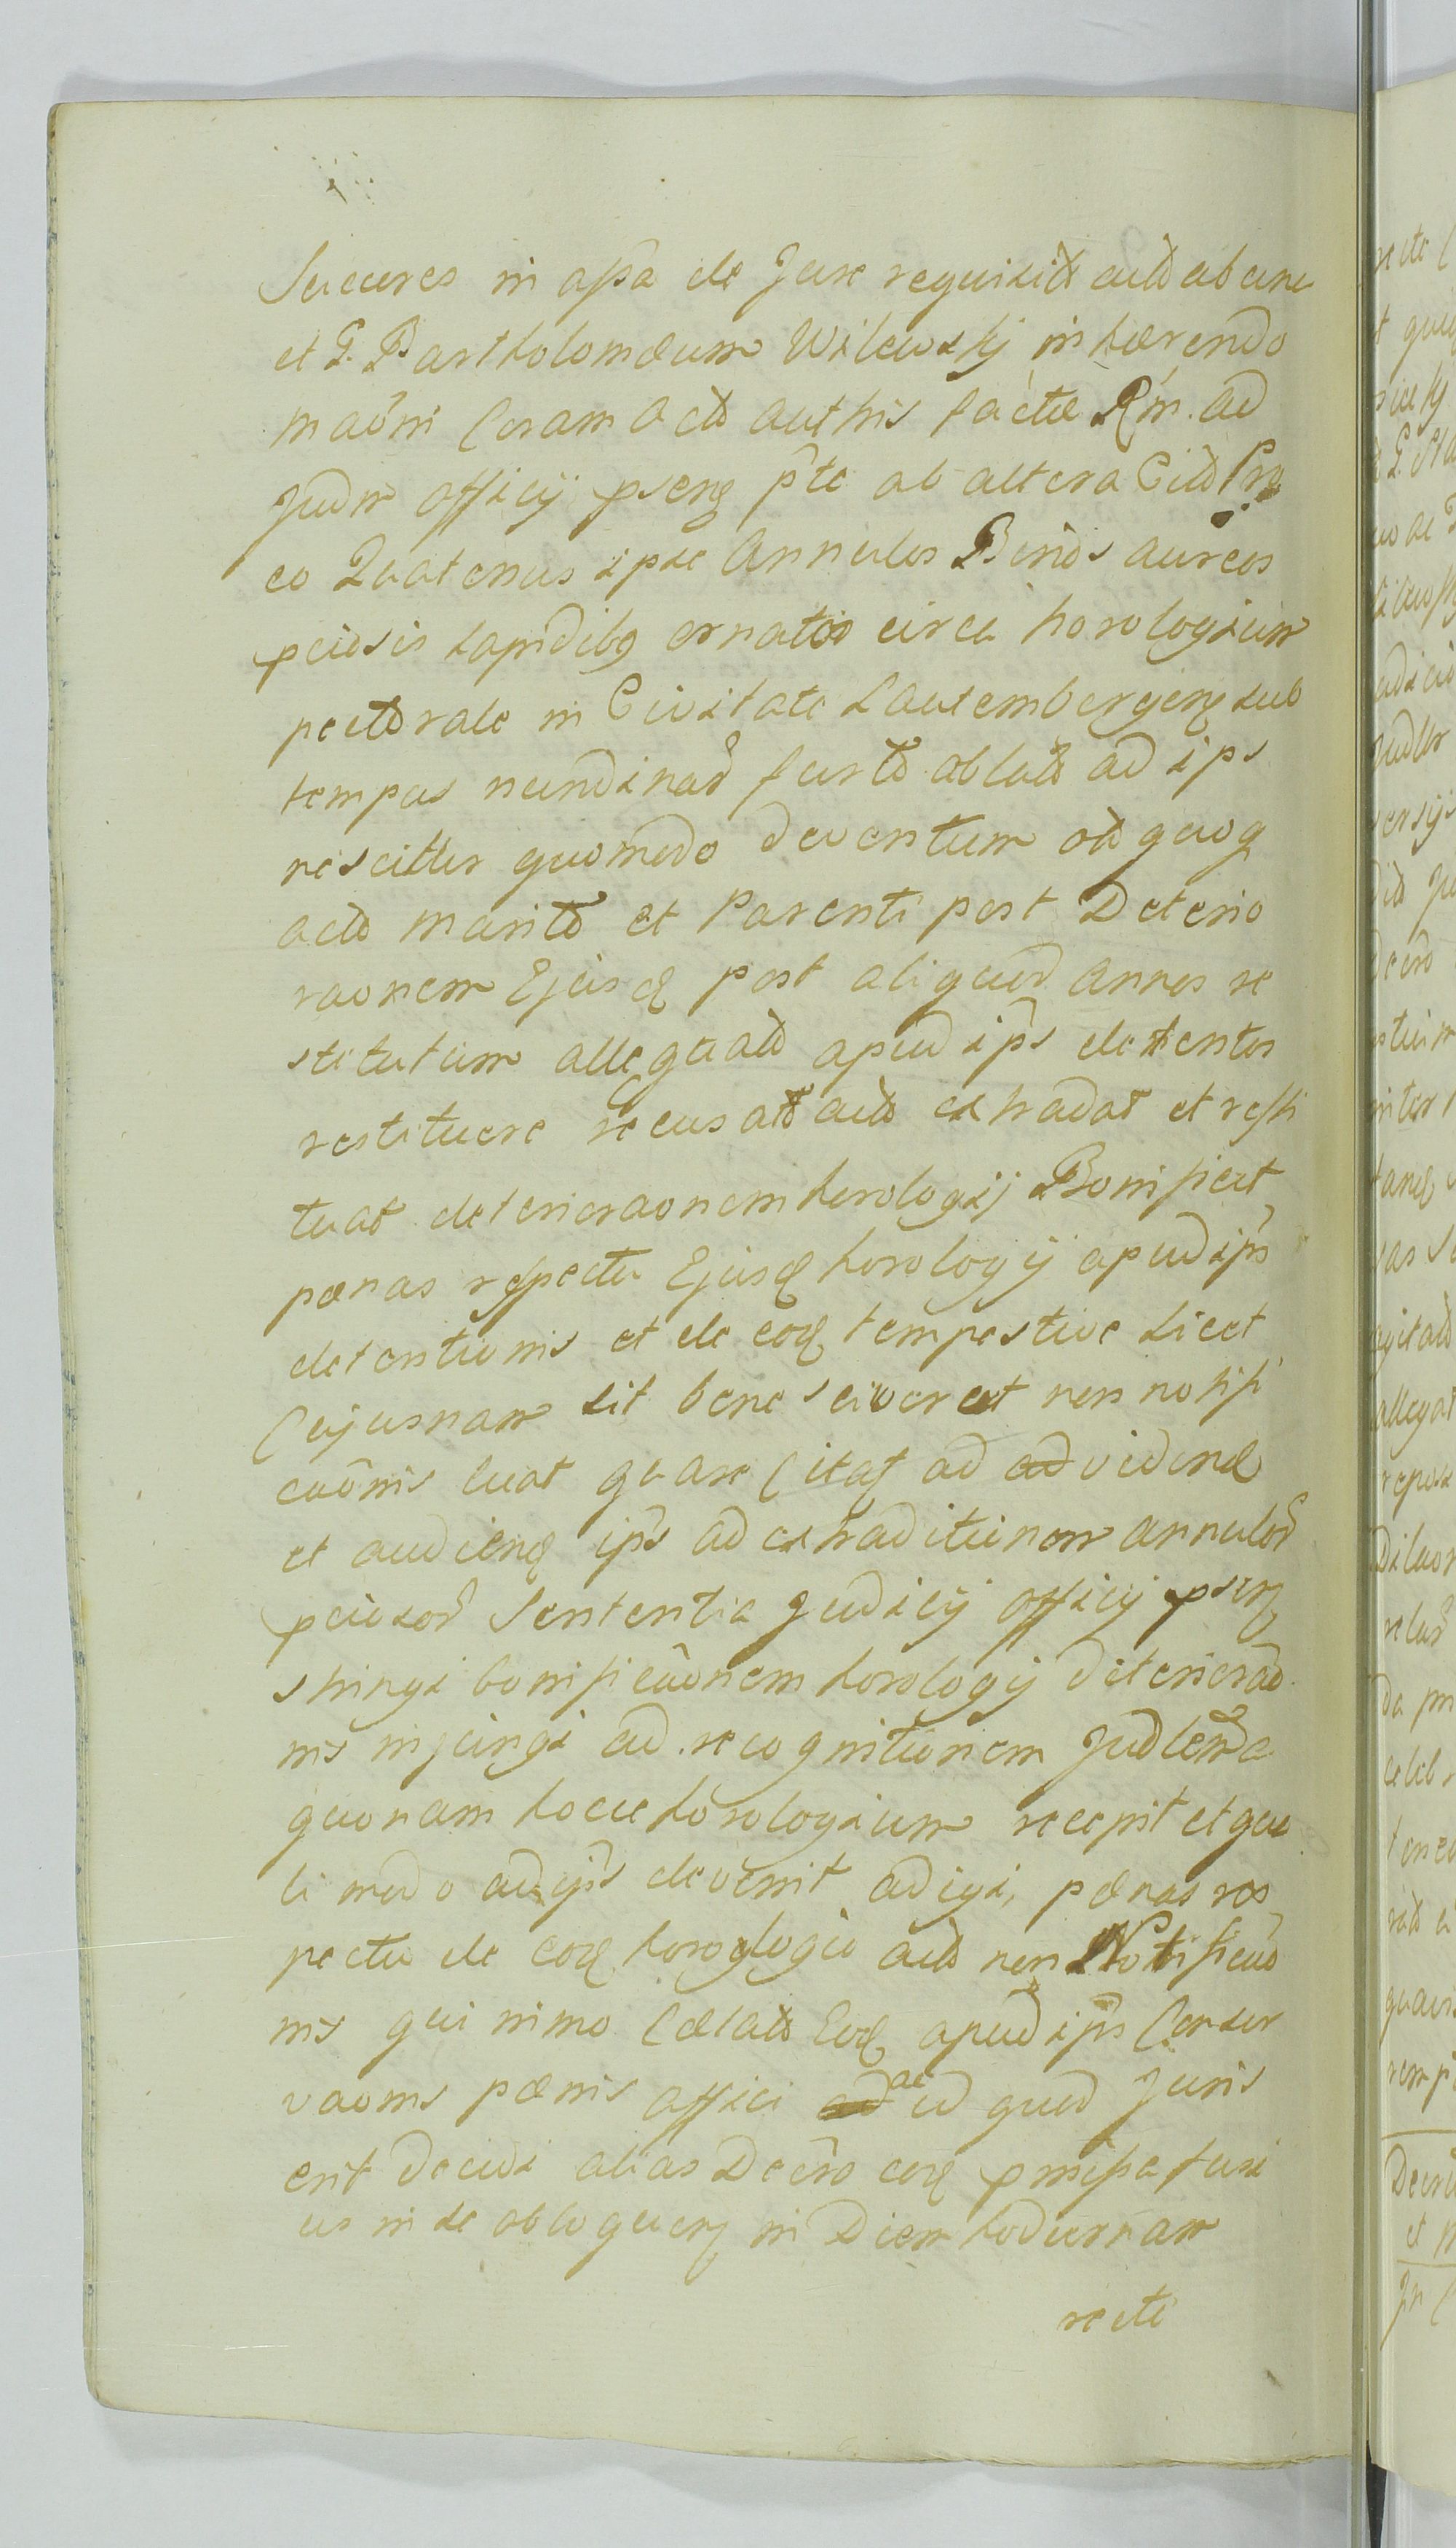 Sucures in assa de Jure requisita ab una
et G. Bartholomæum Wilewskij inhærendo
maoni Coram Actis authis factæ Rm. ad
Judm officij psens pte ab altera
eo Quatenus ipse Annulos Binos aureos
pciosis lapidibq ornatos circa horologium
pectorale in Civitate Lautembergens sub
tempus nundinar furto ablato ad ips
nescitur quomodo deventum quoq
acto marito et Parenti post Deterio
raonem Ejusd post aliquod annos re
stitutum allegato apud ips detentos
restituere recusato extradat et resti
tuat deterioraonem horologij Bonificet
pænas respectu Ejusd horologij apud ips
detentionis et de eod tempestive licet
Cujusnam sit bene sciveret non notifi
caonis luat quare Citat ad ad vidend
et audiend ips ad extraditionem annulor
pciosor Sententia Judicij officij psens
stringi bonificaonem horologij deteriorao
nis injungi ad recognitionem Judlem a
quonam hocce horologium recepit et qua
li modo ad ips devenit adigi, pænas res
pectu de eod horologio non Notificao
nis qui nimo Cælato Eod apud ips Conser
vaoms pænis affici ad ac id quod Juris
erit decidi alias Decro eod pmissa fusi
us in se obloquens in Diem hodiernam
recte